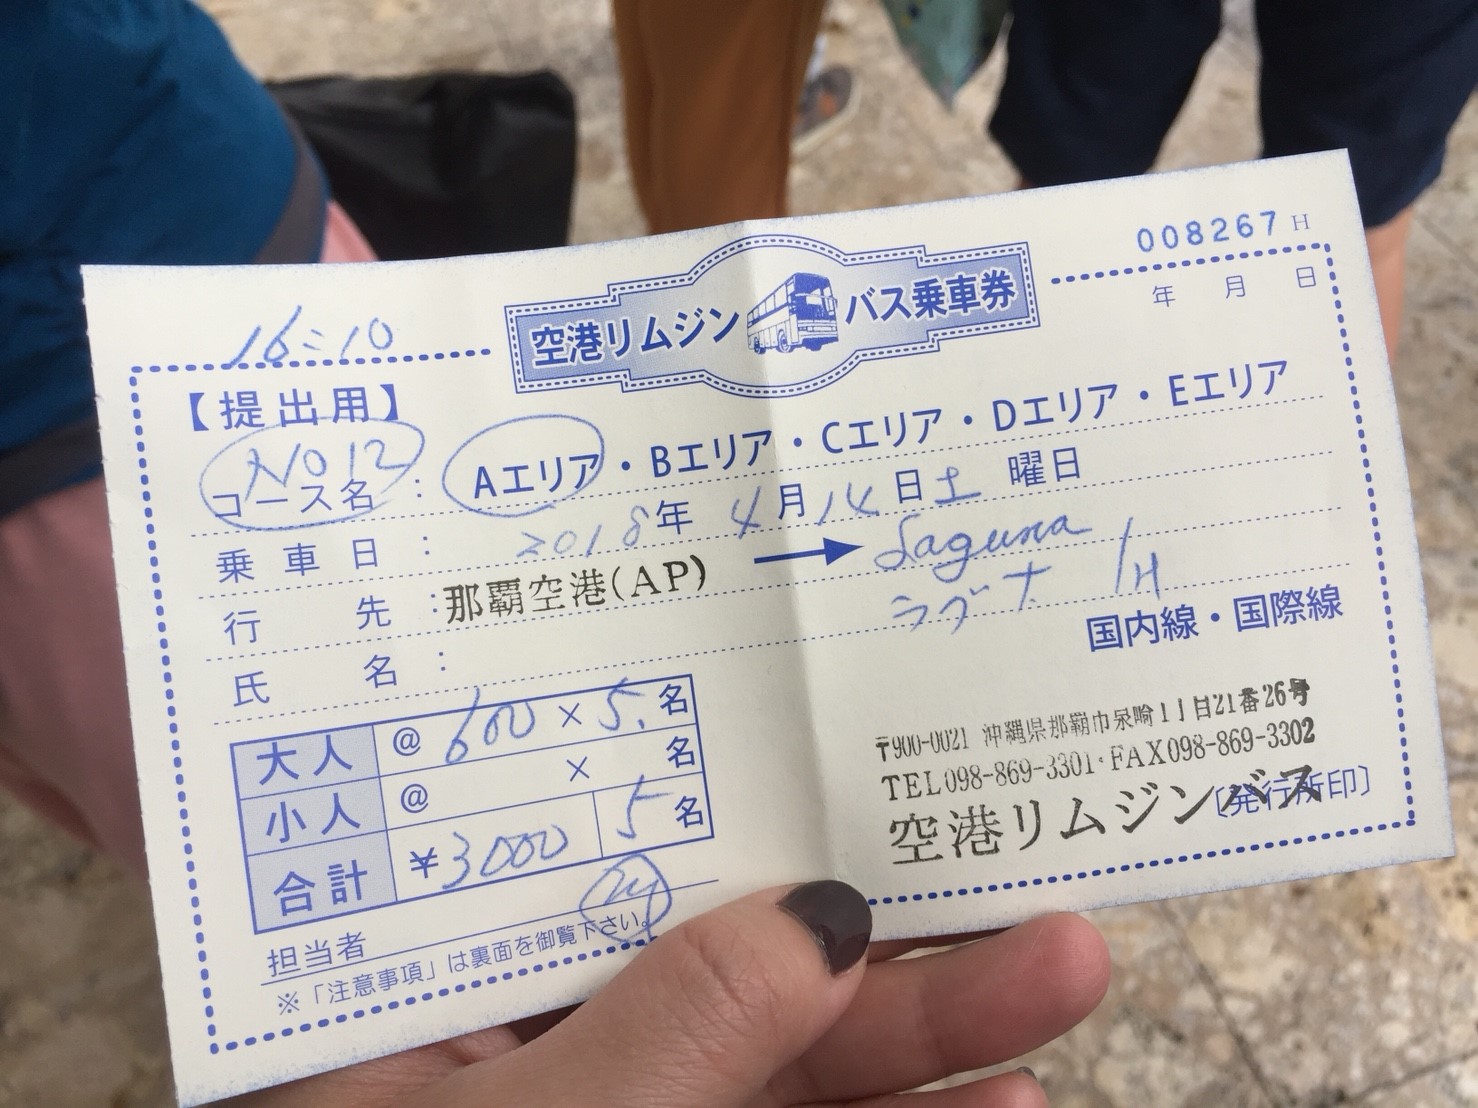 008267 H
年 月 日
空港リムジン バス乗車券
16:10
【提出用】
NO 12
コース名 : Aエリア・Bエリア・Cエリア・Dエリア・Eエリア
乗車日 : 2018年 4月14日 土 曜日
行先 : 那覇空港(AP) → Laguna
ラグナ /H
氏名 :
国内線・国際線
大人 @ 600 × 5. 名
小人 @ × 名
合計 ¥3000 5名
担当者
※「注意事項」は裏面を御覧下さい。
〒900-0021 沖縄県那覇市泉崎1丁目21番26号
TEL098-869-3301・FAX098-869-3302
空港リムジンバス
〔発行所印〕